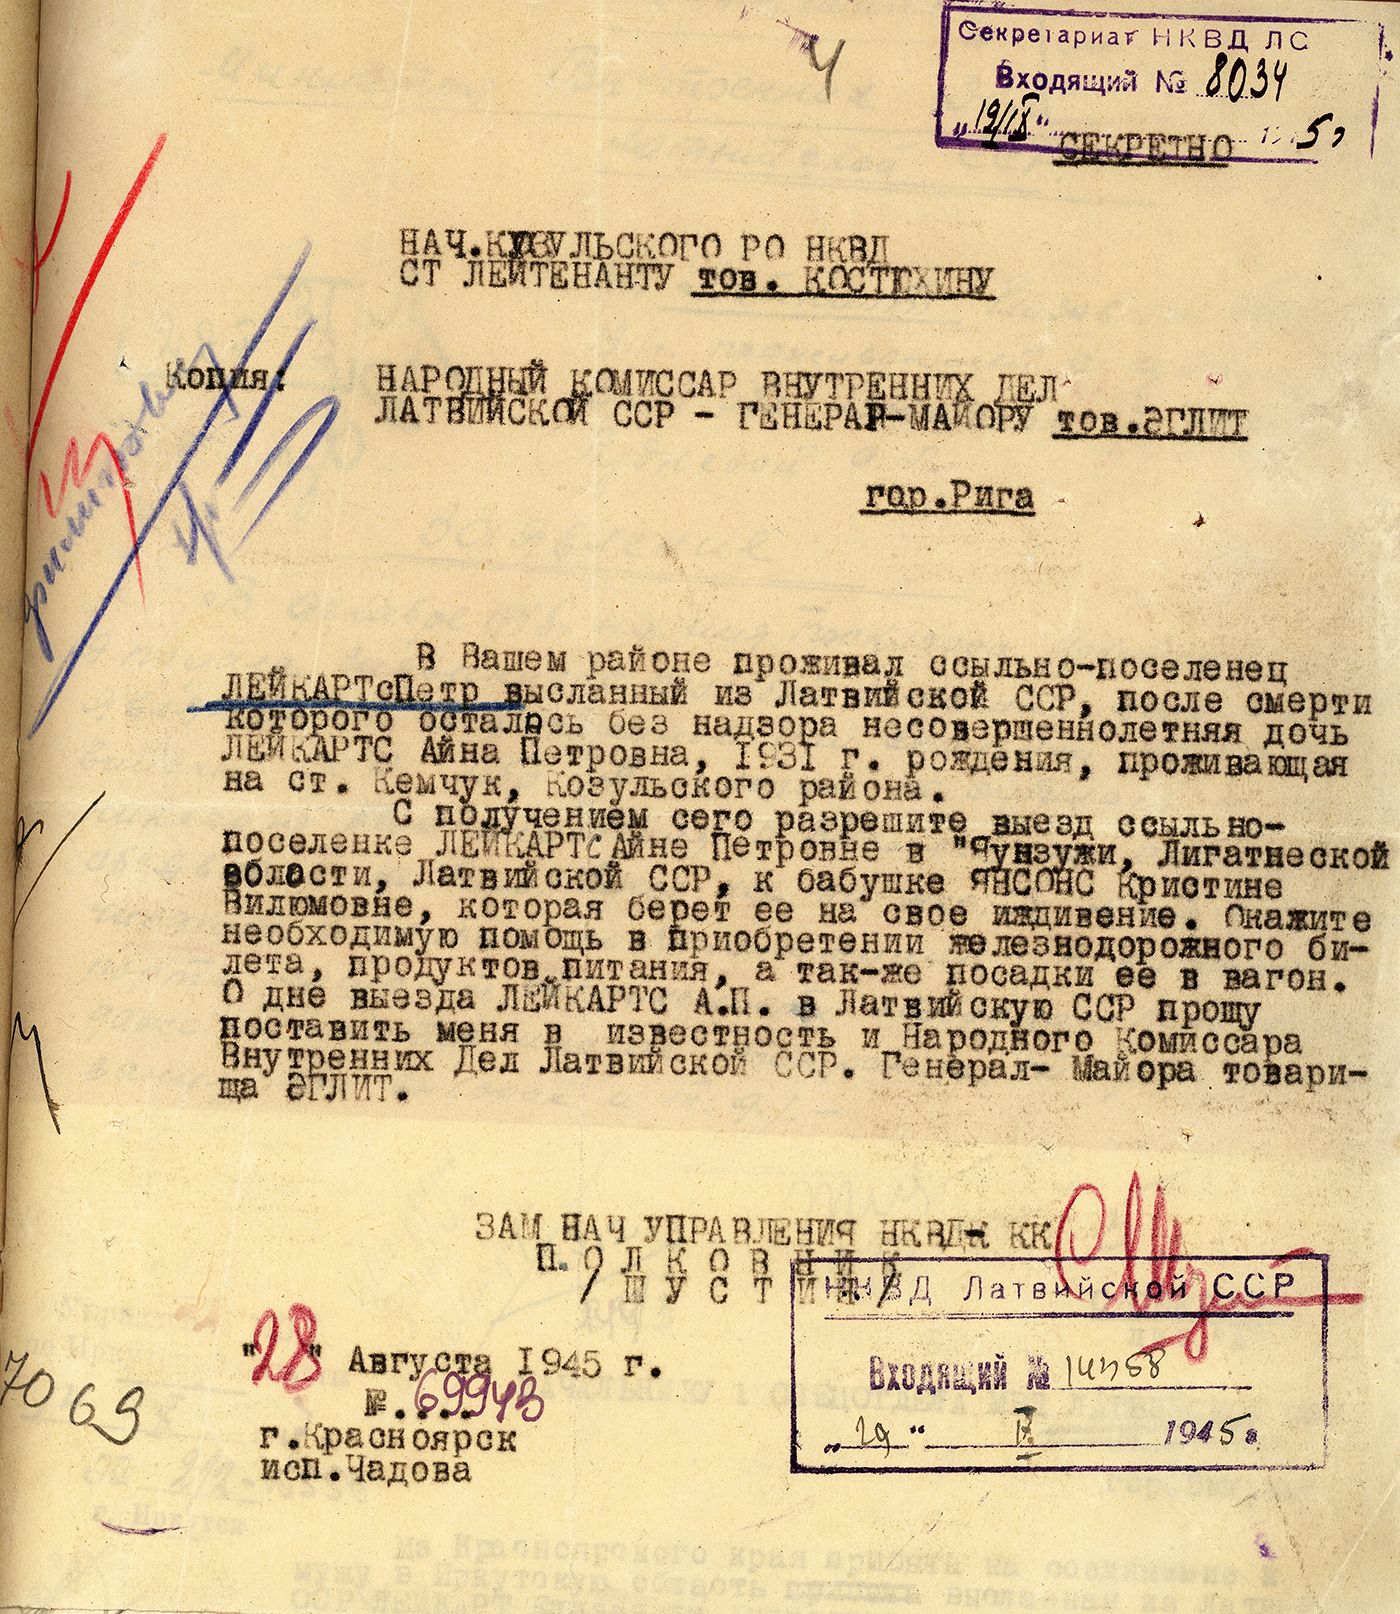 4
Секретариат НКВД ЛС
Входящий № 8034
„19/IX“ 5
СЕКРЕТНО
НАЧ.КОЗУЛЬСКОГО РО НКВД
СТ ЛЕЙТЕНАНТУ тов. КОСТЮХИНУ
Копия: НАРОДНЫЙ КОМИССАР ВНУТРЕННИХ ДЕЛ
ЛАТВИЙСКОЙ ССР – ГЕНЕРАЛ-МАЙОРУ тов.ЭГЛИТ
гор.Рига
В Вашем районе проживал ссыльно-поселенец
ЛЕЙКАРТсПетр высланный из Латвийской ССР, после смерти
которого осталась без надзора несовершеннолетняя дочь
ЛЕЙКАРТС Айна Петровна, 1931 г. рождения, проживающая
на ст. Кемчук, Козульского района.
С получением сего разрешите выезд ссыльно-
поселенке ЛЕЙКАРТС Айне Петровне в "Яунзужи, Лигатнеской
области, Латвийской ССР, к бабушке ЯНСОНС Кристине
Вилюмовне, которая берет ее на свое иждивение. Окажите
необходимую помощь в приобретении железнодорожного би-
лета, продуктов питания, а так-же посадки ее в вагон.
О дне выезда ЛЕЙКАРТС А.П. в Латвийскую ССР прошу
поставить меня в известность и Народного Комиссара
Внутренних Дел Латвийской ССР. Генерал- Майора товари-
ща ЭГЛИТ.
ЗАМ НАЧ УПРАВЛЕНИЯ НКВД-К КК
П.О Л К О В Н И К
/ Ш У С Т И Н /
НКВД Латвийской ССР
Входящий №
„29“ IX 1945г
"28" Августа 1945 г.
№.69943
г.Красноярск
исп.Чадова
7069